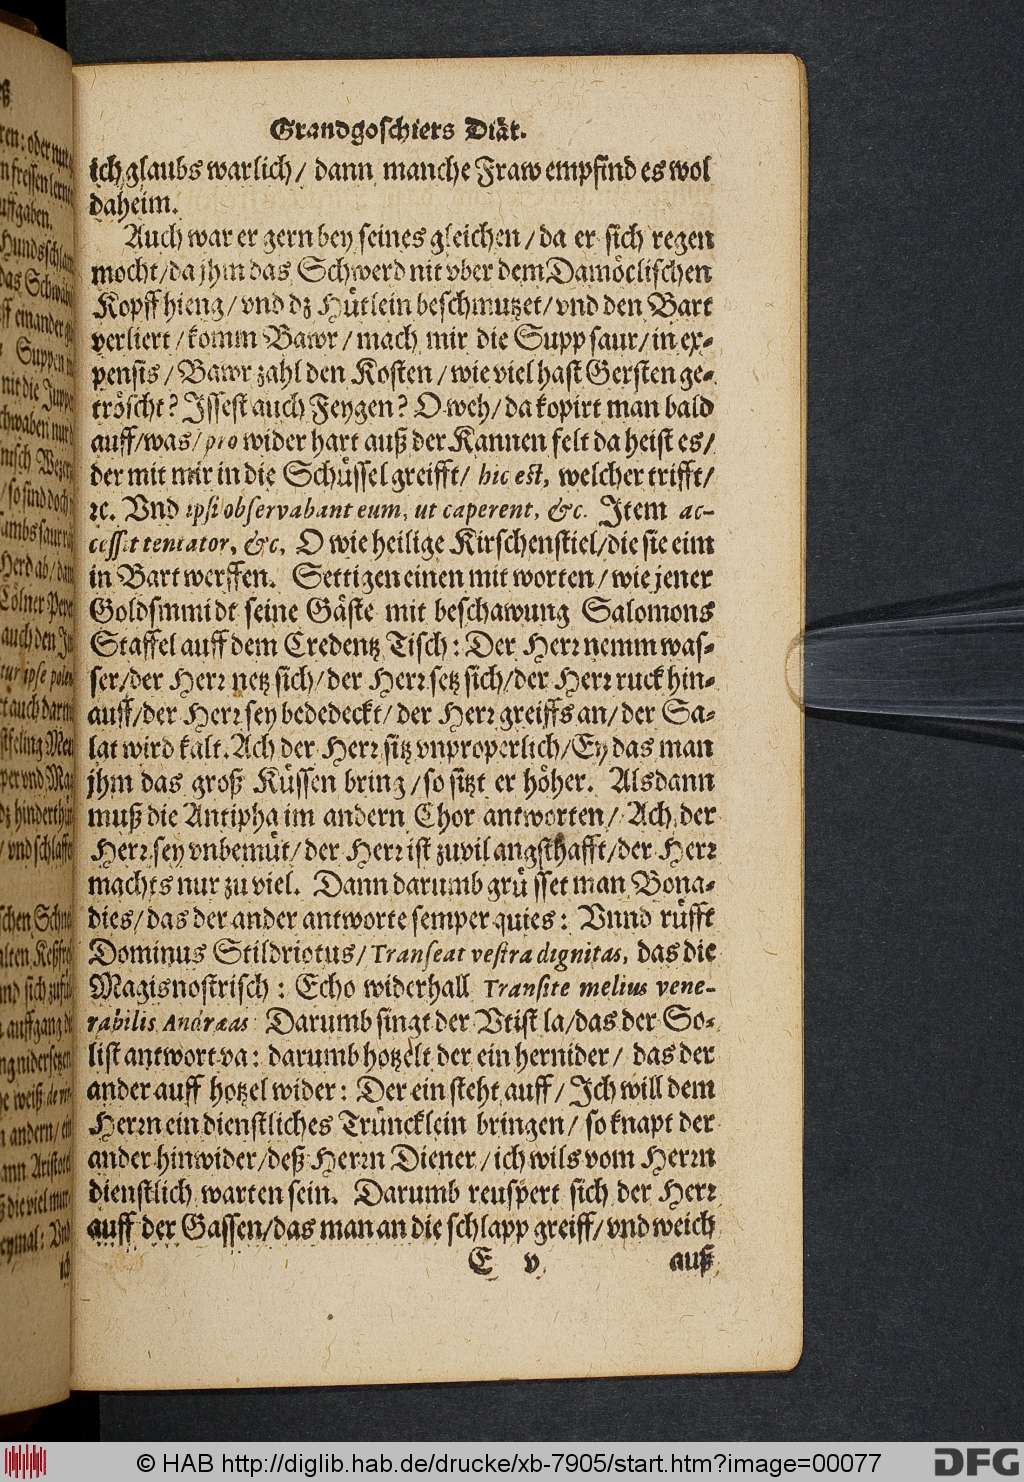 Grandgoschiers Diät.
ich glaubs warlich/ dann manche Fraw empfind es wol
daheim.
Auch war er gern bey seines gleichen/ da er sich regen
mocht/ da jhm das Schwerd nit vber dem Damöclischen
Kopff hieng/ vnd dz Hütlein beschmutzet/ vnd den Bart
verliert/ komm Bawr/ mach mir die Supp saur/ in ex-
pensis/ Bawr zahl den Kosten/ wie viel hast Gersten ge-
tröscht? Issest auch Feygen? O weh/ da kopirt man bald
auff/ was/ pro wider hart auß der Kannen felt da heist es/
der mit mir in die Schüssel greifft/ hic est, welcher trifft/
ꝛc. Vnd ipsi observabant eum, ut caperent, &c. Item ac-
cessit tentator, &c. O wie heilige Kirschenstiel/ die sie eim
in Bart werffen. Settigen einen mit worten/ wie jener
Goldsmmidt seine Gäste mit beschawung Salomons
Staffel auff dem Credentz Tisch: Der Herr nemm was-
ser/ der Herr netz sich/ der Herr setz sich/ der Herr ruck hin-
auff/ der Herr sey bededeckt/ der Herr greiffs an/ der Sa-
lat wird kalt. Ach der Herr sitz vnproperlich/ Ey das man
jhm das groß Küssen bring/ so sitzt er höher. Alsdann
muß die Antipha im andern Chor antworten/ Ach der
Herr sey vnbemüt/ der Herr ist zuvil angsthafft/ der Herr
machts nur zu viel. Dann darumb grüsset man Bona-
dies/ das der ander antworte semper quies: Vnnd rüfft
Dominus Stildriotus/ Transeat vestra dignitas, das die
Magisnostrisch: Echo widerhall Transite melius vene-
rabilis Andræas Darumb singt der Vtist la/ das der So-
list antwort va: darumb hotzelt der ein hernider/ das der
ander auff hotzel wider: Der ein steht auff/ Ich will dem
Herrn ein dienstliches Trüncklein bringen/ so knapt der
ander hinwider/ deß Herrn Diener/ ich wils vom Herrn
dienstlich warten sein. Darumb reuspert sich der Herr
auff der Gassen/ das man an die schlapp greiff/ vnd weich
E v auß
© HAB http://diglib.hab.de/drucke/xb-7905/start.htm?image=00077
DFG